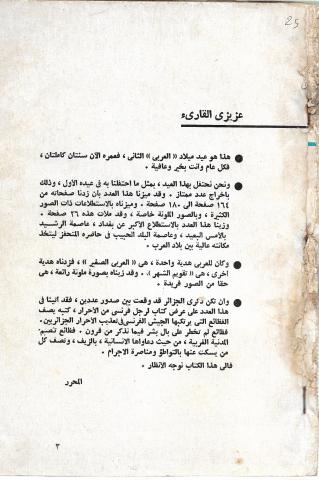 25
عزيزى القارىء
● هذا هو عيد ميلاد «العربى» الثانى ، فعمره الآن سنتان كاملتان ، فكل عام وانت بخير وعافية .
● ونحن نحتفل بهذا العيد ، بمثل ما احتفلنا به فى عيده الأول ، وذلك
باخراج عدد ممتاز . وقد ميزنا هذا العدد بأن زدنا صفحاته من
١٦٤ صفحة الى ١٨٠ صفحة . وميزناه بالاستطلاعات ذات الصور
الكثيرة ، وبالصور الملونة خاصة ، وقد ملأت هذه ٣٦ صفحة .
وزينا هذا العدد بالاستطلاع الأكبر عن بغداد ، عاصمة الرشيد
بالأمس البعيد ، وعاصمة البلد الحبيب فى حاضره المتحفز ليتخذ
مكانته عالية بين بلاد العرب .
● وكان للعربى هدية واحدة ، هى «العربى الصغير» ، فزدناه هدية
اخرى ، هى «تقويم الشهر» . وقد زيناه بصورة ملونة رائعة ، هى
حقا من الصور فريدة .
● وان تكن ذكرى الجزائر قد وقعت بين صدور عددين ، فقد أتينا فى
هذا العدد على عرض كتاب لرجل فرنسى من الأحرار ، كتبه يصف
الفظائع التى يرتكبها الجيش الفرنسى فى تعذيب الأحرار الجزائريين .
فظائع لم تخطر على بال بشر فيما نذكر من قرون . فظائع تصم
المدنية الغربية ، من حيث دعاواها الانسانية ، بالزيف ، وتصف كل
من يسكت عنها بالتواطؤ ومناصرة الاجرام .
فالى هذا الكتاب نوجه الأنظار .
المحرر
٣